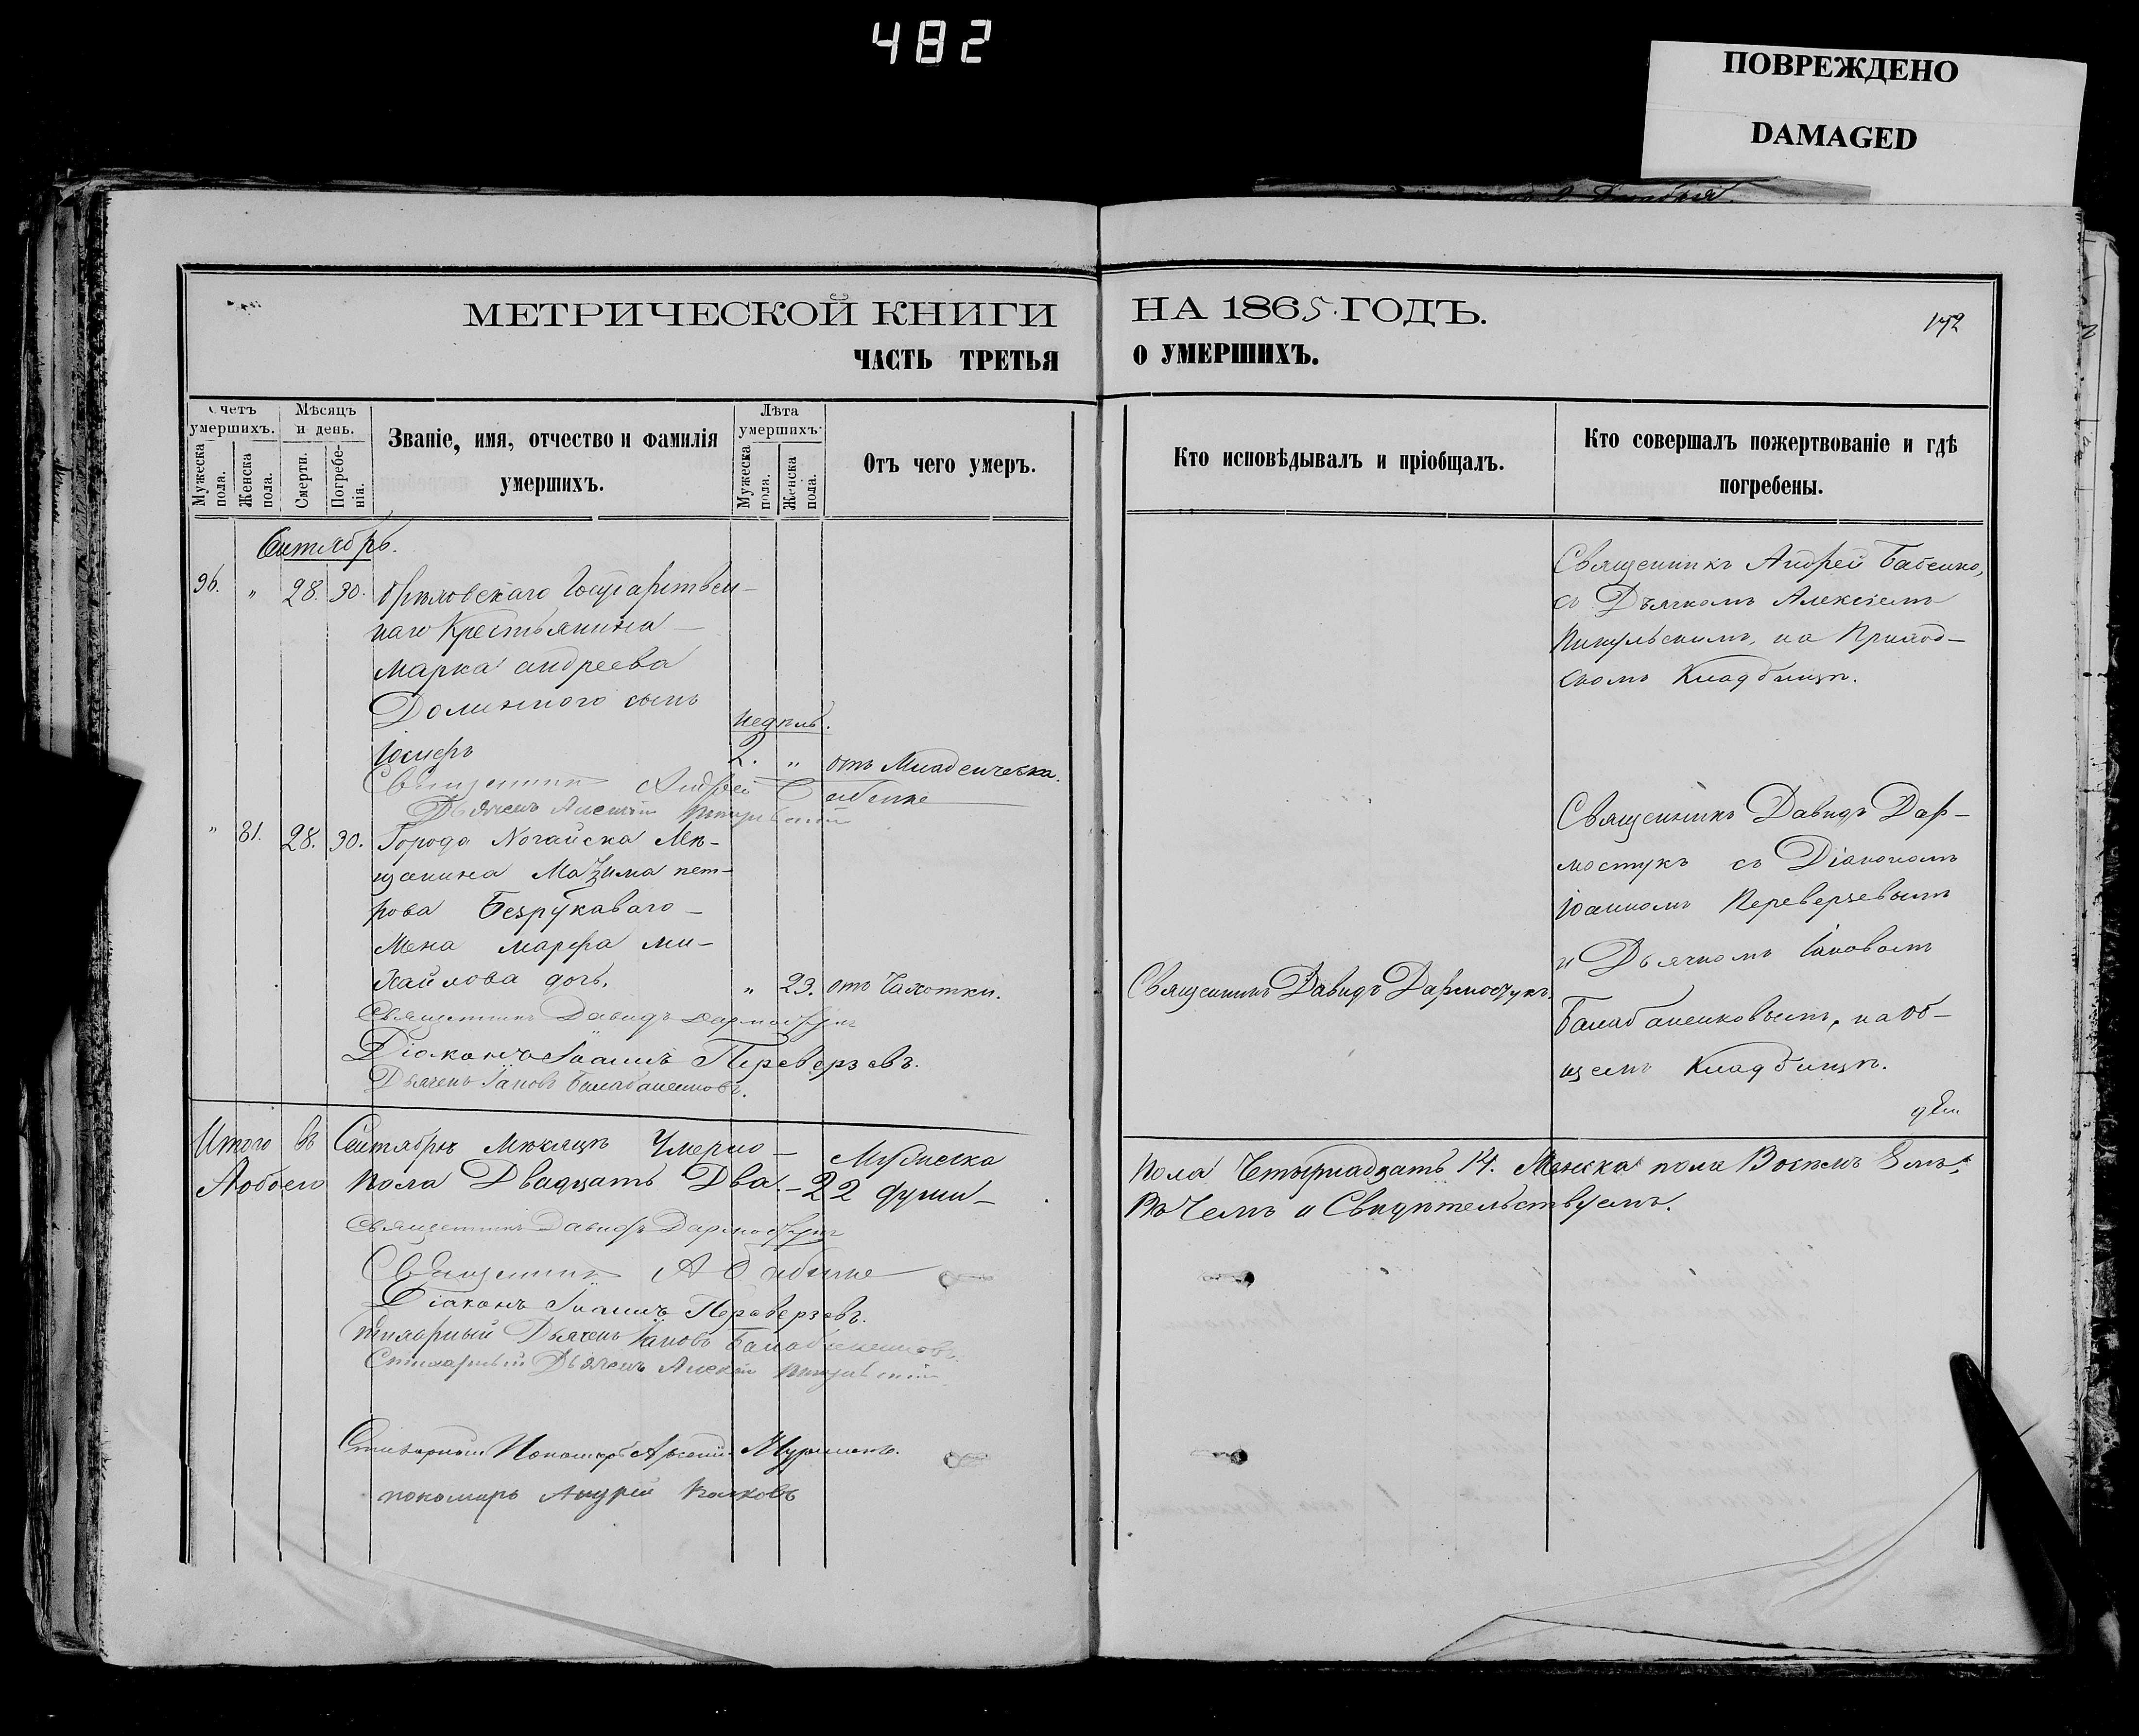 482
ПОВРЕЖДЕНО
DAMAGED
МЕТРИЧЕСКОЙ КНИГИ НА 1865 ГОДЪ.
172
ЧАСТЬ ТРЕТЬЯ О УМЕРШИХЪ.
Счетъ умершихъ.
Мужеска пола.
Женска пола.
Мѣсяцъ и день.
Смерти.
Погребенія.
Званіе, имя, отчество и фамилія
умершихъ.
Лѣта умершихъ
Мужеска пола.
Женска пола.
Отъ чего умеръ.
Кто исповѣдывалъ и пріобщалъ.
Кто совершалъ пожертвованіе и гдѣ
погребены.
Сентябрь.
96. " 28. 30. Орѣховскаго Государствен-
наго Крестьянина
Марка андреева
Долинного сынъ
недѣль.
Іосифъ 2. " отъ Младенческа.
Священникъ Андрей Бабенко
Дьячекъ Алексій Пикульскій
Священникъ Андрей Бабенко,
съ Дьячкомъ Алексіемъ
Пикульскимъ, на Приход-
скомъ Кладбищѣ.
" 81. 28. 30. Города Ногайска Мѣ-
щанина Мазима пет-
рова Безрукаваго
Жена марфа ми-
хайлова дочь. " 23. отъ Чахотки.
Священникъ Давидъ Дармостукъ
Діаконъ Іоаннъ Переверзевъ.
Дьячекъ Іаковъ Балабаненковъ.
Священникъ Давидъ Дармостукъ.
Священникъ Давидъ Дар-
мостукъ съ Діакономъ
Іоанномъ Переверзевымъ
и Дьячкомъ Іаковомъ
Балабаненковымъ, на об-
щемъ Кладбищѣ.
Итого въ Сентябрѣ Мѣсяцѣ Умерло Мужеска
пола Четырнадцать 14. Женска пола Восемь 8
Аобоего пола Двадцать Два - 22 души
Въ Чемъ и Свидѣтельствуемъ.
Священникъ Давидъ Дармостукъ
Священникъ А Бабенко
Діаконъ Іоаннъ Переверзевъ.
Стихарный Дьячекъ Іаковъ Балабаненковъ.
Стихарный Дьячекъ Алексій Пикульскій
Стихарный Пономарь
пономарь Андрей Волковъ